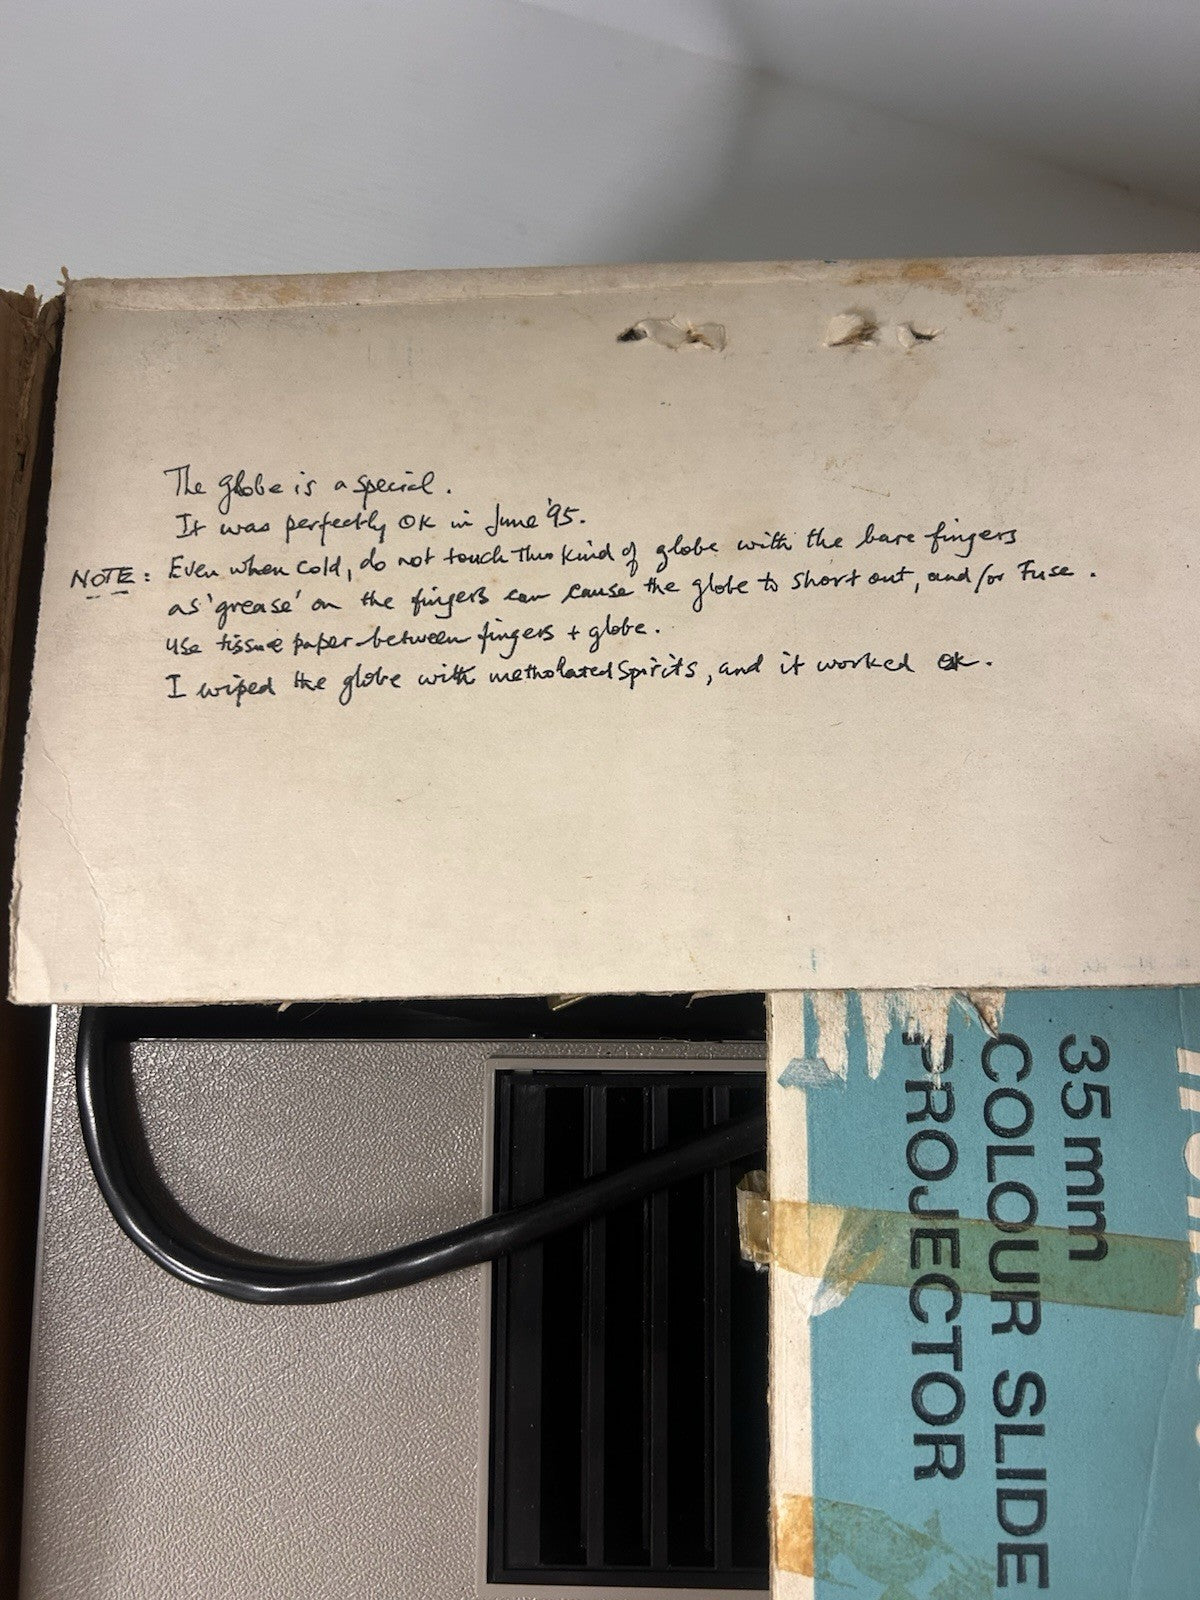 The globe is a special.
It was perfectly OK in June '95.
NOTE: Even when cold, do not touch this kind of globe with the bare fingers
as 'grease' on the fingers can cause the globe to short out, and/or Fuse.
Use tissue paper between fingers + globe.
I wiped the globe with metholated spirits, and it worked OK.
35 mm
COLOUR SLIDE
PROJECTOR